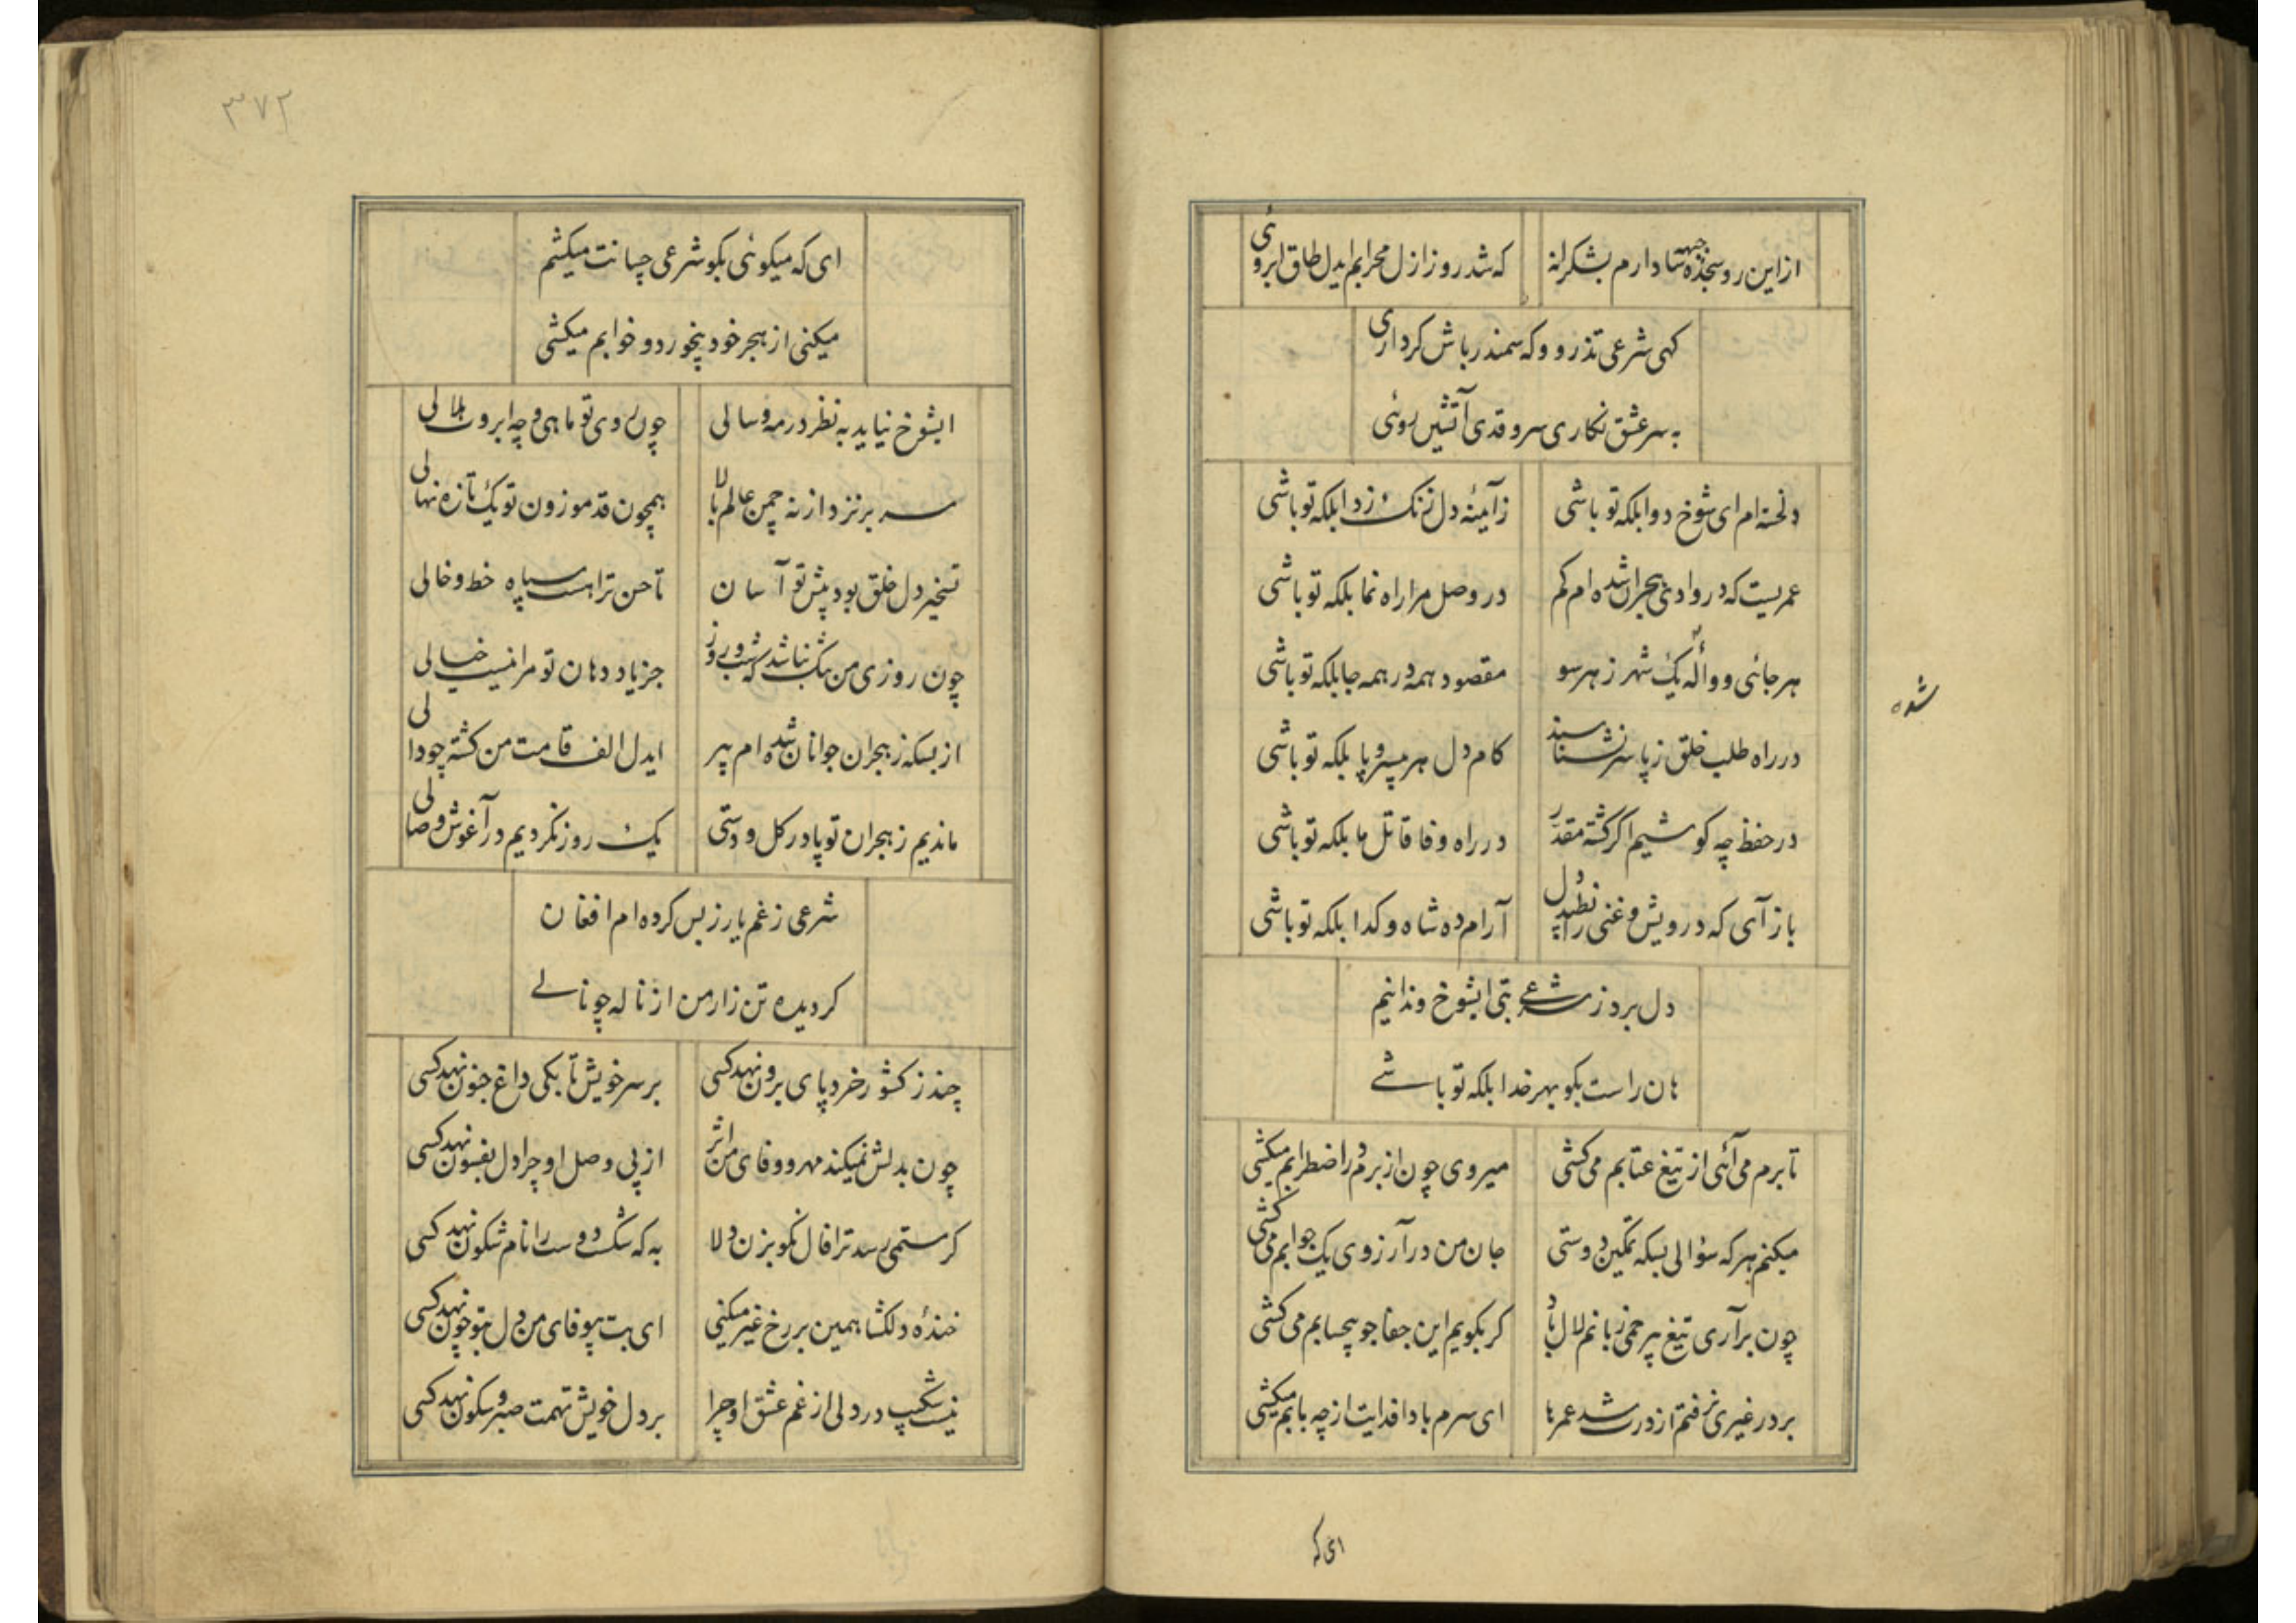 از این رو سجده جبهه‌سا دارم بشکرانه
که شد روز ازل محرابم ایدل طاق ابروئی
کهی شرعی تذرو و که سمندر باش کرداری
به سر عشق نکاری سرو قدی آتشین روئی
دلخسته ام ای شوخ دوا بلکه تو باشی
زآئینه دل زنک زدا بلکه تو باشی
عمریست که در وادئی هجران شده ام کم
در وصل مرا راه نما بلکه تو باشی
هر جائی و واله یک شهر ز هر سو
مقصود همه در همه جا بلکه تو باشی
شده
در راه طلب خلق ز پا سر نشناسند
کام دل هر بیسر و پا بلکه تو باشی
در حفظ چه کوشیم اکر کشته مقدر
در راه وفا قاتل ما بلکه تو باشی
باز آی که درویش و غنی را نطپد دل
آرام ده شاه و کدا بلکه تو باشی
دل برد ز شرعی بتی ایشوخ و ندانیم
هان راست بکو بهر خدا بلکه تو باشے
تا برم می آئی از تیغ عتابم می کشی
میروی چون از برم در اضطرابم میکشی
میکنم هر که سؤالی بسکه تمکین دوستی
جان من در آرزوی یک جوابم می کشی
چون برآری تیغ بیرحمی زبانم لال باد
کر بکویم این جفا جو بیحسابم می کشی
بر در غیری نرفتم از درت شد عمرها
ای سرم بادا فدایت از چه بابم میکشی
ای که
۳۷۲
ای که میکوئی بکو شرعی چسانت میکشم
میکنی از هجر خود بیخورد و خوابم میکشی
ایشوخ نیاید به نظر در مه و سالی
چون روی تو ماهی و چه ابروت هلالی
سر بر نزد از نه چمن عالم بالا
همچون قد موزون تو یک تازه نهالی
تسخیر دل خلق بود پیش تو آسان
تا حسن ترا هست سپاه خط و خالی
چون روزی من تنک نباشد که شب و روز
جز یاد دهان تو مرا نیست خیالی
از بسکه ز هجران جوانان شده ام پیر
ایدل الف قامت من کشته چو دالی
ماندیم ز هجران تو پا در کل و دستی
یک روز نکردیم در آغوش وصالی
شرعی ز غم یار ز بس کرده ام افغان
کردیده تن زار من از ناله چو نالے
چند ز کشور خرد پای برون نهد کسی
بر سر خویش تا بکی داغ جنون نهد کسی
چون بدلش نمیکند مهر و وفای من اثر
از پی وصل او چرا دل بفسون نهد کسی
کر ستمی رسد ترا فال نکو بزن دلا
به که شکست دوست را نام شکون نهد کسی
خندۀ دلکشا همین بر رخ غیر میکنی
ای بت بیوفای من دل بتو چون نهد کسی
نیست شکیب در دلی از غم عشق او چرا
بر دل خویش تهمت صبر و سکون نهد کسی